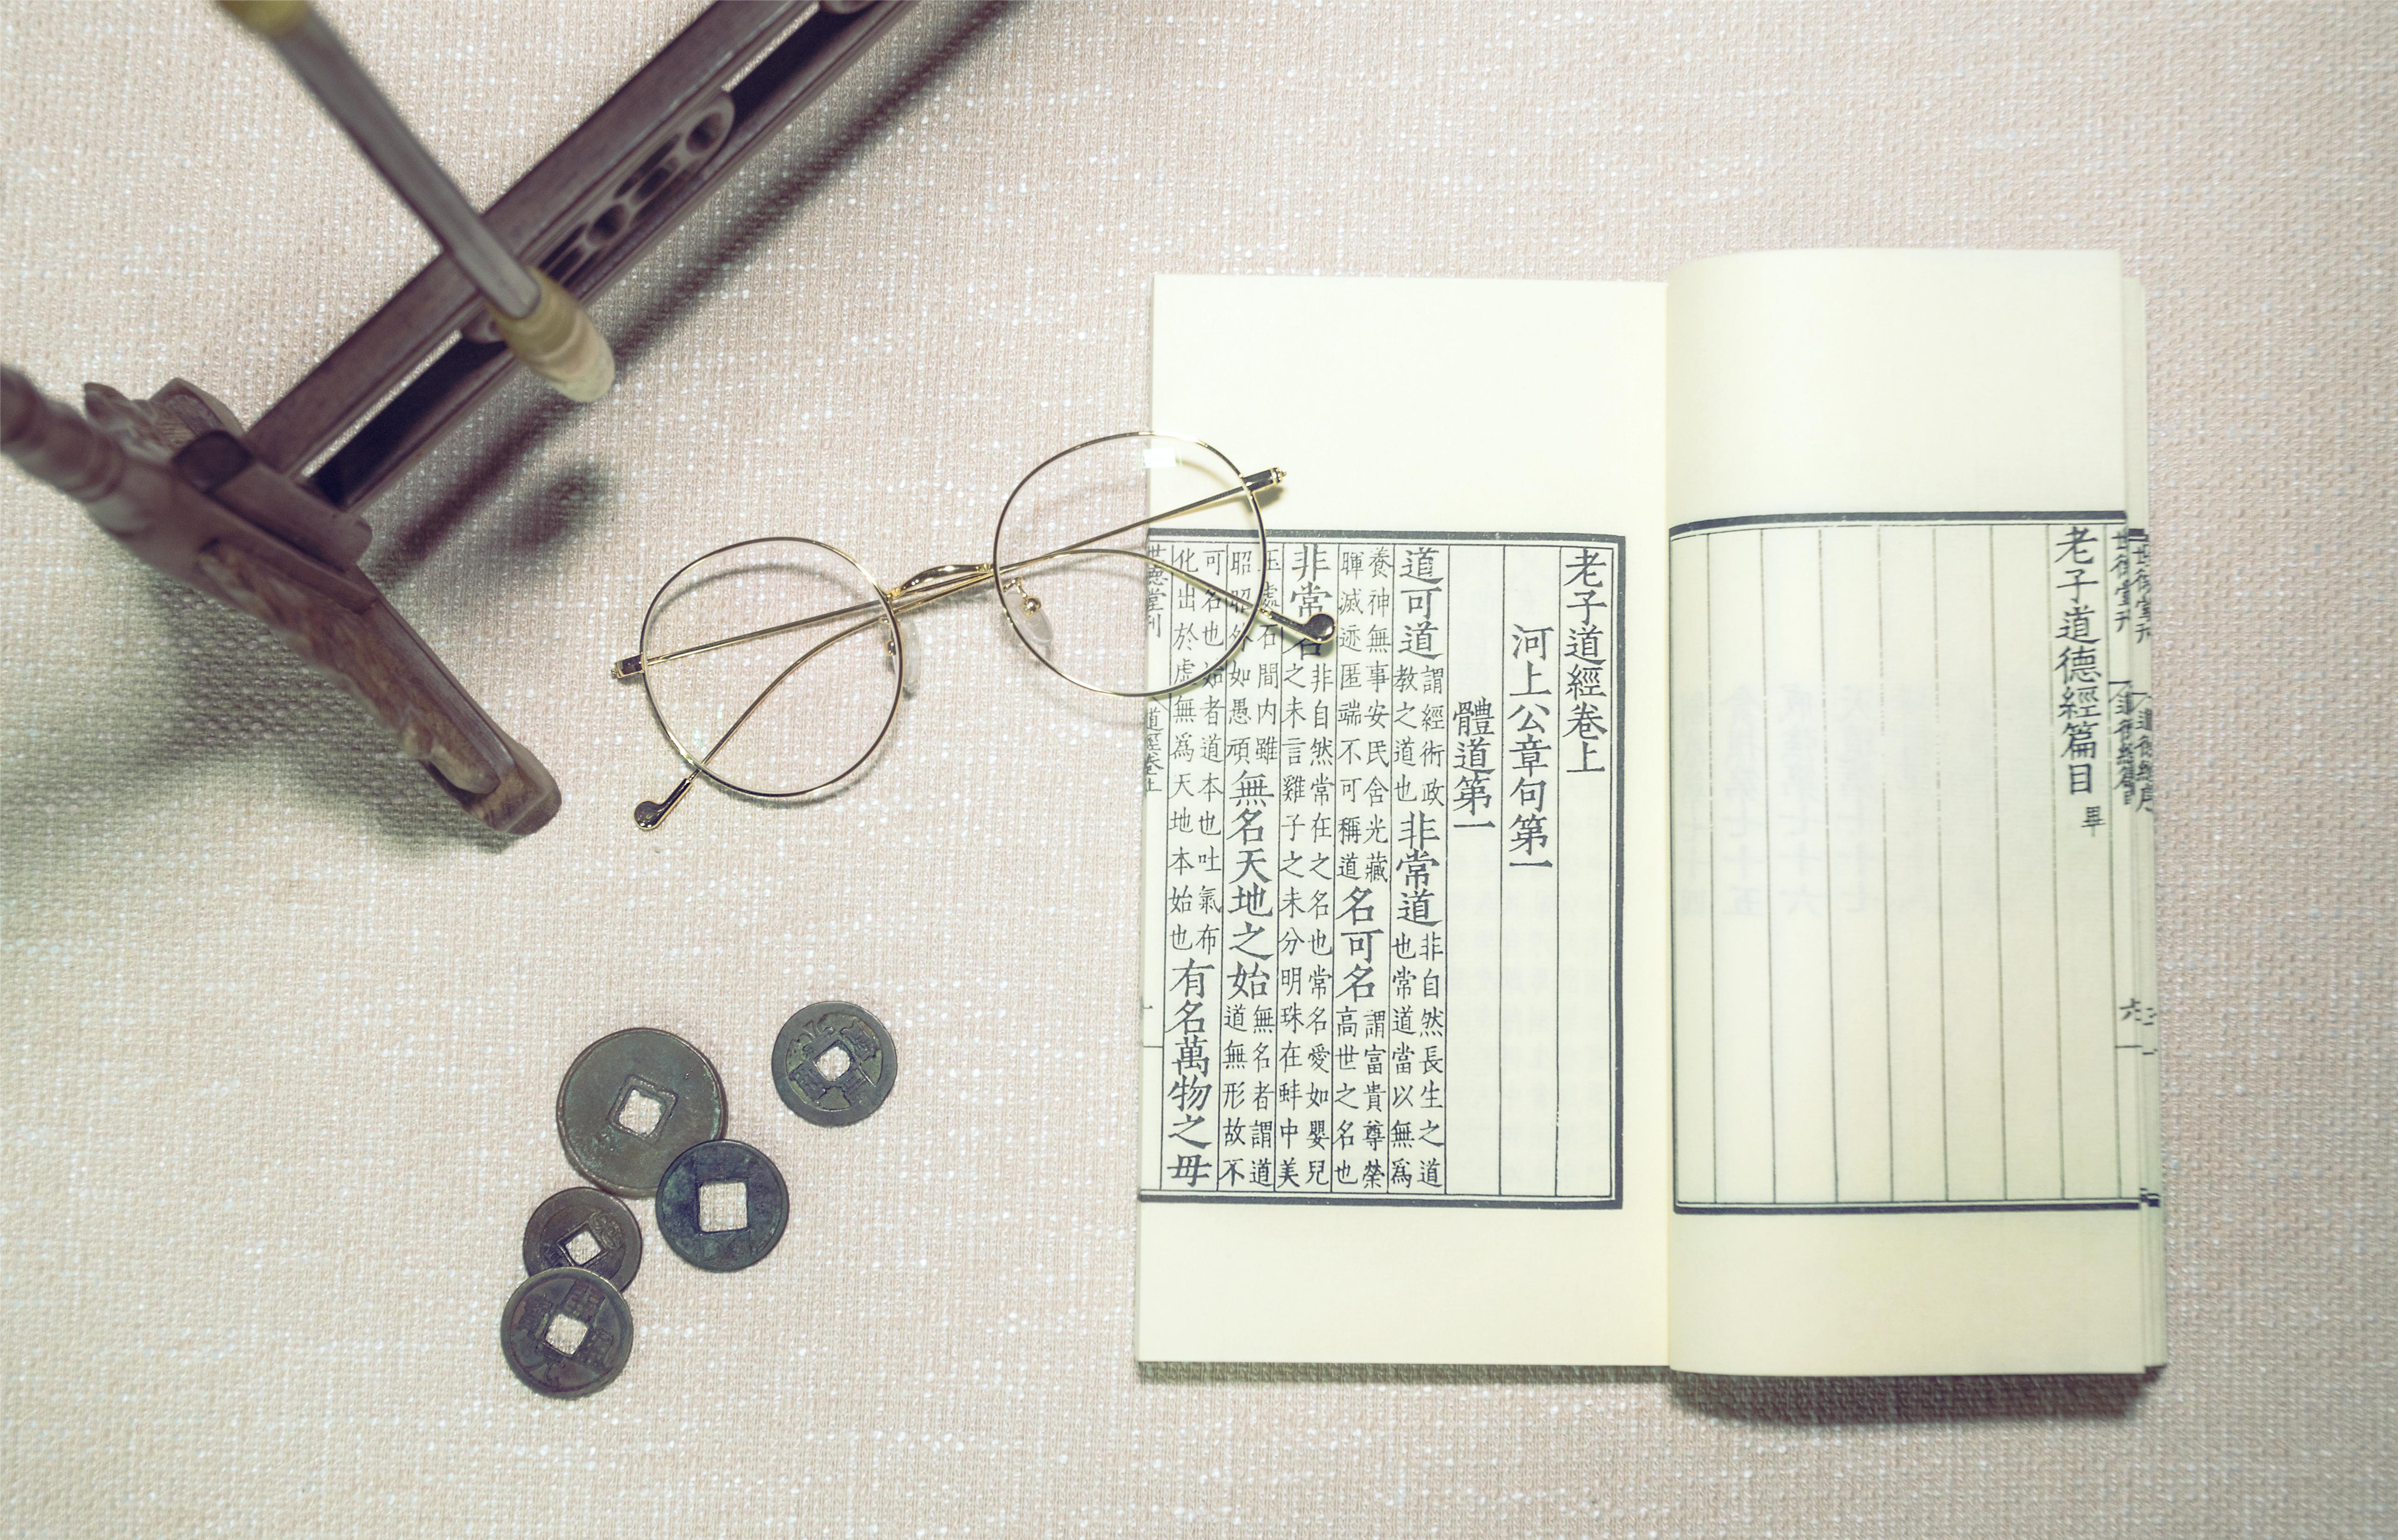 老子道德經篇目 畢
老子道經卷上
河上公章句第一
體道第一
道可道謂經術政教之道也非常道非自然長生之道也常道當以無爲
養神無事安民含光藏暉滅迹匿端不可稱道名可名謂富貴尊榮高世之名也
非常名非自然常在之名也常名愛如嬰兒之未言雞子之未分明珠在蚌中美
玉處石間内雖昭昭外如愚頑無名天地之始無名者謂道道無形故不
可名也始者道本也吐氣布化出於虛無爲天地本始也有名萬物之母
世德堂刊 道經卷上